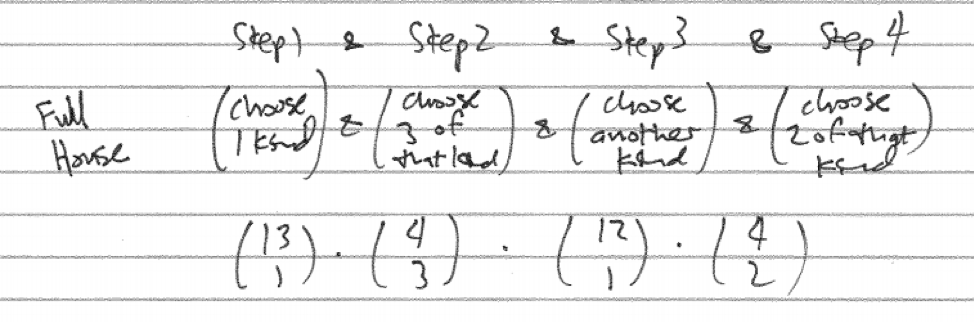 Step 1 & Step 2 & Step 3 & Step 4
Full House (choose 1 kind) & (choose 3 of that kind) & (choose another kind) & (choose 2 of that kind)
(13 1) · (4 3) · (12 1) · (4 2)